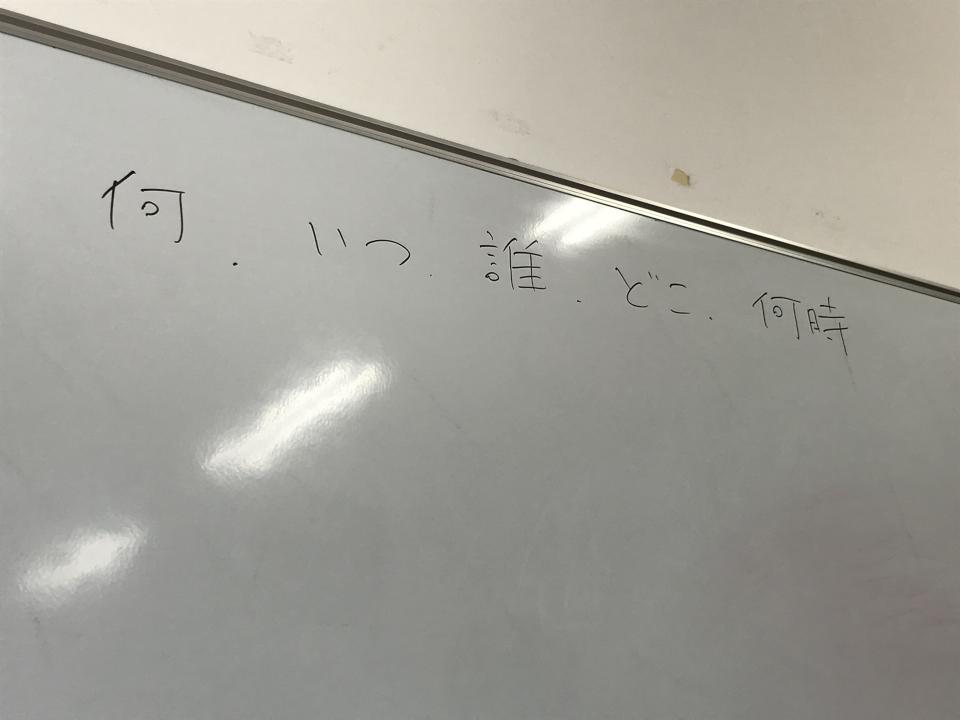 何．いつ．誰．どこ．何時